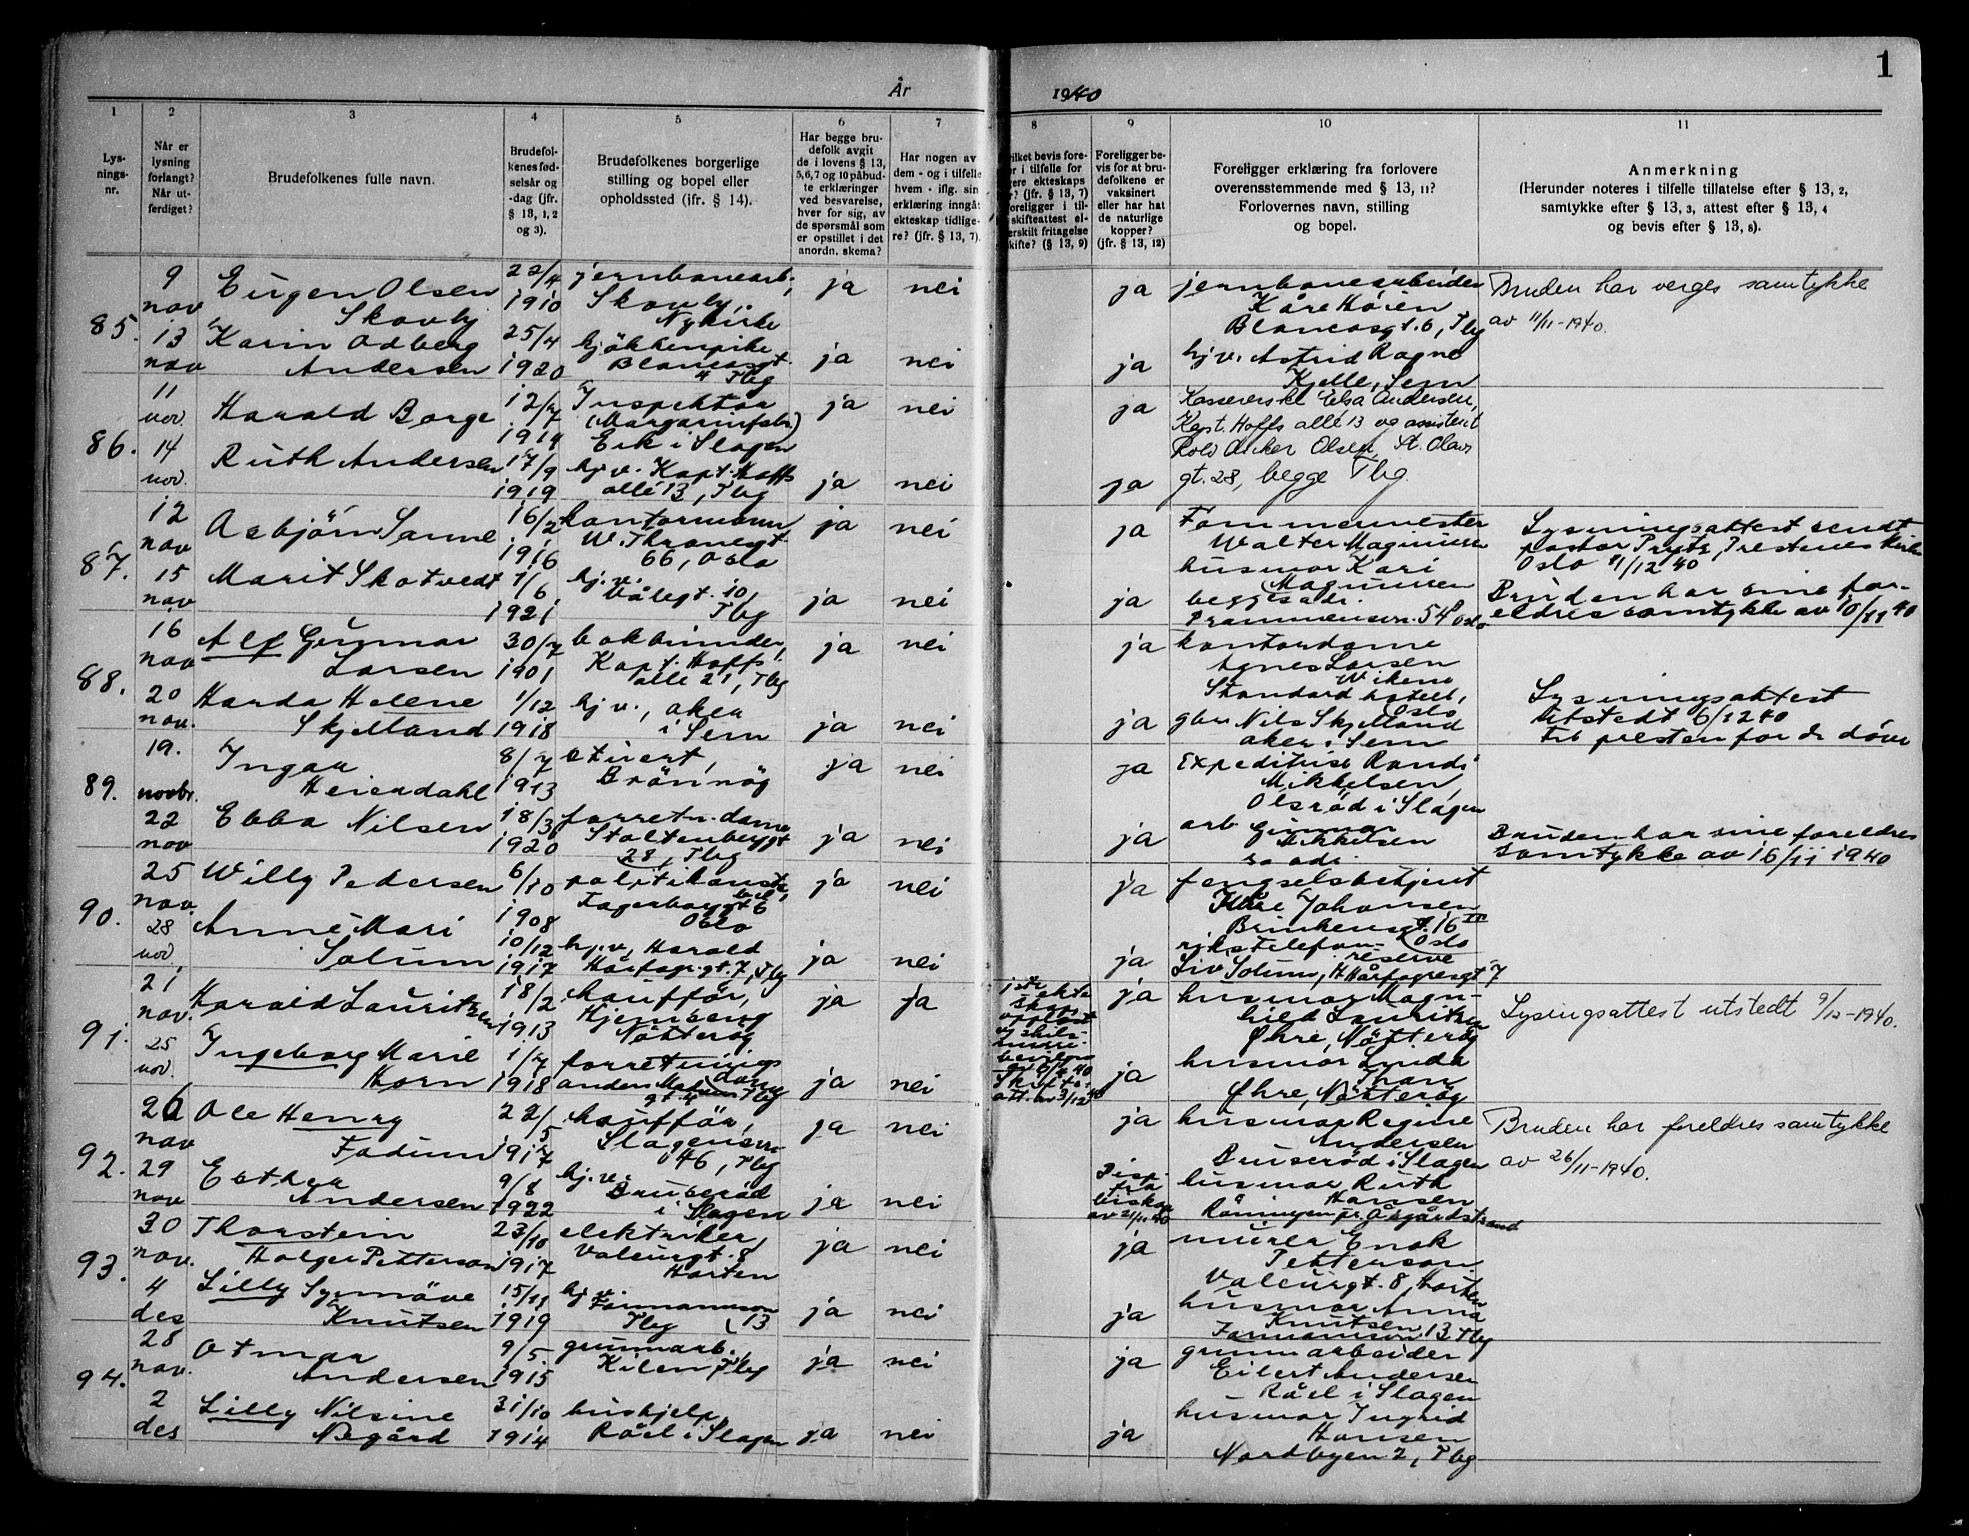 1
År 1940
1 2 3 4 5 6 7 8 9 10 11
Lys-
nings-
nr.
Når er
lysning
forlangt?
Når ut-
ferdiget?
Brudefolkenes fulle navn.
Brudefol-
kenes fød-
selsår og
-dag (jfr.
§ 13, 1, 2
og 3).
Brudefolkenes borgerlige
stilling og bopel eller
opholdssted (ifr. § 14).
Har begge bru-
defolk avgit
de i lovens § 13,
5,6,7 og 10 påbud-
te erklæringer
ved besvarelse,
hver for sig, av
de spørsmål som
er opstillet i det
anordn. skema?
Har nogen av
dem - og i tilfelle
hvem - iflg. sin
erklæring inngåt
ekteskap tidlige-
re? (jfr. § 13, 7).
ilket bevis fore-
er i tilfelle for
gere ekteskaps
r? (jfr. § 13, 7)
oreligger i til-
skifteattest el-
erskilt fritagelse
kifte? (§ 13, 9)
Foreligger be-
vis for at bru-
defolkene er
vaksinert
eller har hat
de naturlige
kopper?
(jfr. § 13, 12)
Foreligger erklæring fra forlovere
overensstemmende med § 13, 11?
Forlovernes navn, stilling
og bopel.
Anmerkning
(Herunder noteres i tilfelle tillatelse efter § 13, 2,
samtykke efter § 13, 3, attest efter § 13, 4
og bevis efter § 13, 8).
85.
9
nov
Eugen Olsen
Skovly
22/4
1910
jernbanearb.,
Skovly,
Nykirke
ja nei
ja
jernbanearbeider
Kåre Høien
Blancasgt. 6, Tbg
Bruden har verges samtykke
av 11/11-1940.
13
nov
Karin Odberg
Andersen
25/4
1920
kjøkkenpike
Blancasgt.
4 Tbg
ja nei
ja
hj.v. Astrid Ragne
Kjelle, Sem
86.
11
nov.
Harald Borge
12/7
1914
Inspektør
(Margarinfabr.)
Eik i Slagen
ja nei
ja
Kassererske Elsa Andersen,
Kapt. Hoffs allé 13 og assistent
Rolv Archer Olsen, St. Olavs
gt. 28, begge Tbg.
14
nov.
Ruth Andersen
17/9
1919
hj v. Kapt. Hoffs
allé 13, Tbg
ja nei
ja
87.
12
nov
Asbjörn Sanne
16/2
1916
kontormann
W. Thranesgt
66, Oslo
ja nei
ja
Tømmermester
Walter Magnussen
husmor Kari
Magnussen
begges adr.
Drammensvn. 54 Oslo
Lysningsattest sendt
pastor Prytz, Prestenes Kirke
Oslo 4/12 40
15
nov
Marit Skotvedt
1/6
1921
hj. v.
Vålegt. 10,
Tbg
ja nei
ja
Bruden har sine for-
eldres samtykke av 10/11 40
88.
16
nov
Alf Gunnar
Larsen
30/7
1901
bokbinder,
Kapt. Hoffs
alle 21, Tbg
ja nei
ja
kontordame
Agnes Larsen
Wikene
Standard hotell,
Oslo
20
nov.
Harda Helene
Skjelland
1/12
1918
hj v., Aker
i Sem
ja nei
ja
gbr. Nils Skjelland
Aker i Sem
Lysningsattest
utstedt 6/12 40
til presten for de døve
89.
19.
novbr.
Ingar
Heierdahl
8/7
1913
stuert,
Brönnög
ja nei
ja
Expeditrise Randi
Mikkelsen
Olsrød i Slagen
22
nov
Ebba Nilsen
18/3
1920
forretn. dame
Stoltenberggt
28, Tbg
ja nei
ja
arb Gunnar
Mikkelsen
s. adr.
Bruden har sine foreldres
samtykke av 16/11 1940
90.
25
nov.
Willy Pedersen
6/10
1908
politikonst.,
Fagerborggt 6
Oslo
ja nei
ja
fengselsbetjent
Johansen
16
Oslo
28
nov.
Anne Mari
Solum
10/12
1917
hj.v. Harald
Hårfagr. gt. 7, Tbg
ja nei
ja
rikstelefon-
reserve
Liv Solum, H Hårfagresgt 7
91.
21
nov.
Harald Lauritzen
18/2
1913
chauffør,
Hjemseng
Nøtterøy
ja ja
ja
husmor Magn-
hild Lauritzen
Øhre, Nøtterøy
Lysingsattest utstedt 9/12-1940.
25
nov.
Ingeborg Marie
Horn
1/7
1918
forretnings
dame
Tbg
ja nei
Skifte-
att. av 3/12 40
ja
husmor Lynda
Thon
Øhre, Nøtterøy
92.
26
nov
Ole Henry
Fadum
22/5
1917
chauffør,
Slagensvn
46, Tbg
ja nei
ja
husmor Regine
Andersen
Bruserød i Slagen
Bruden har foreldres samtykke
av 26/11-1940.
29
nov
Esther
Andersen
9/8
1922
hj.v.
Bruserød
i Slagen
ja nei
Disp.
fra
biskop
av 21/11 40
husmor Ruth
Hansen
Råningen pr. Åsgårdstrand
93.
30
nov.
Thorstein
Holger Petterson
23/10
1917
elektriker,
Valeurgt. 8
Horten
ja nei
ja
murer Enok
Petterson
Valeurgt. 8, Horten
4
des
Lilly Synnöve
Knutsen
15/11
1919
hj v.
Farmannsvn
Tbg 13
ja nei
ja
husmor Anna
Knutsen
Farmannsvn 13 Tbg
94.
28
nov.
Otmar
Andersen
9/5.
1915
grunnarb.,
Kilen, Tbg
ja nei
ja
grunnarbeider
Eilert Andersen
Råel i Slagen
2
des
Lilly Nilsine
Nøgård
31/10
1914
hushjelp,
Råel i Slagen
ja nei
ja
husmor Ingrid
Hansen
Nordbyen 2, Tbg